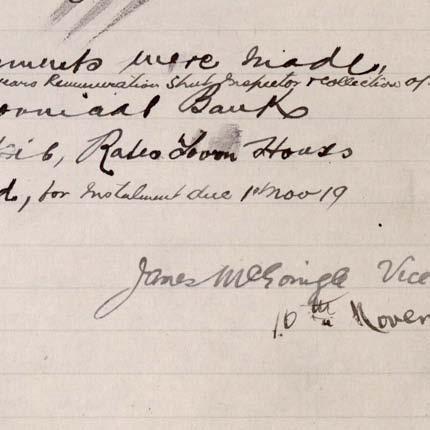 were made,
years Remuneration Street Inspector & collection of
Bank
6, Rates Town Houses
d, for Instalment due 1st Nov 19
James McGonigle Vice
10th Novem